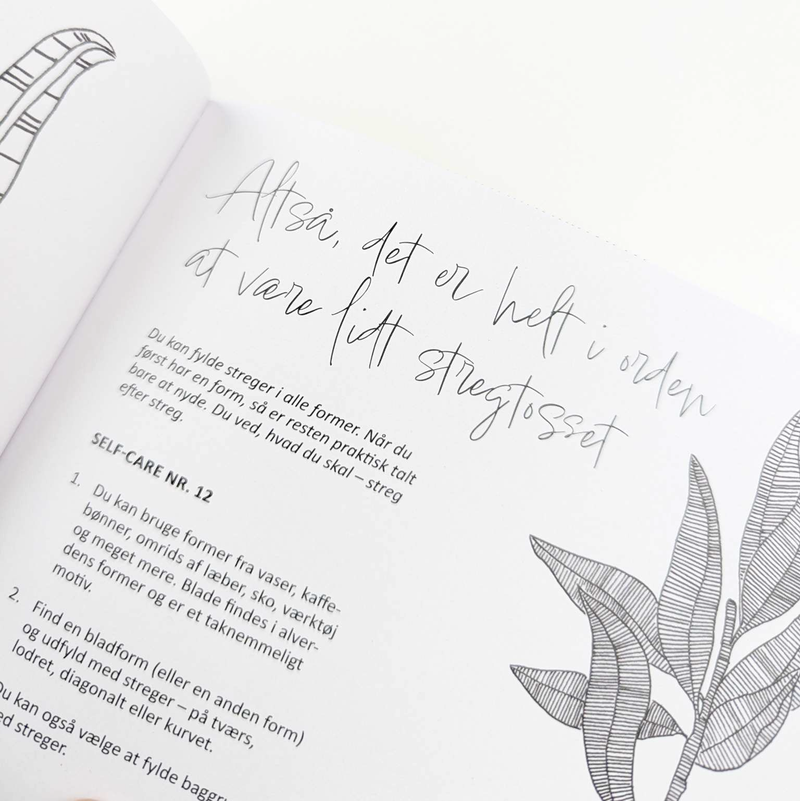 Altså, det er helt i orden
at være lidt stregtosset
Du kan fylde streger i alle former. Når du
først har en form, så er resten praktisk talt
bare at nyde. Du ved, hvad du skal – streg
efter streg.
SELF-CARE NR. 12
1. Du kan bruge former fra vaser, kaffe-
bønner, omrids af læber, sko, værktøj
og meget mere. Blade findes i alver-
dens former og er et taknemmeligt
motiv.
2. Find en bladform (eller en anden form)
og udfyld med streger – på tværs,
lodret, diagonalt eller kurvet.
kan også vælge at fylde
streger.